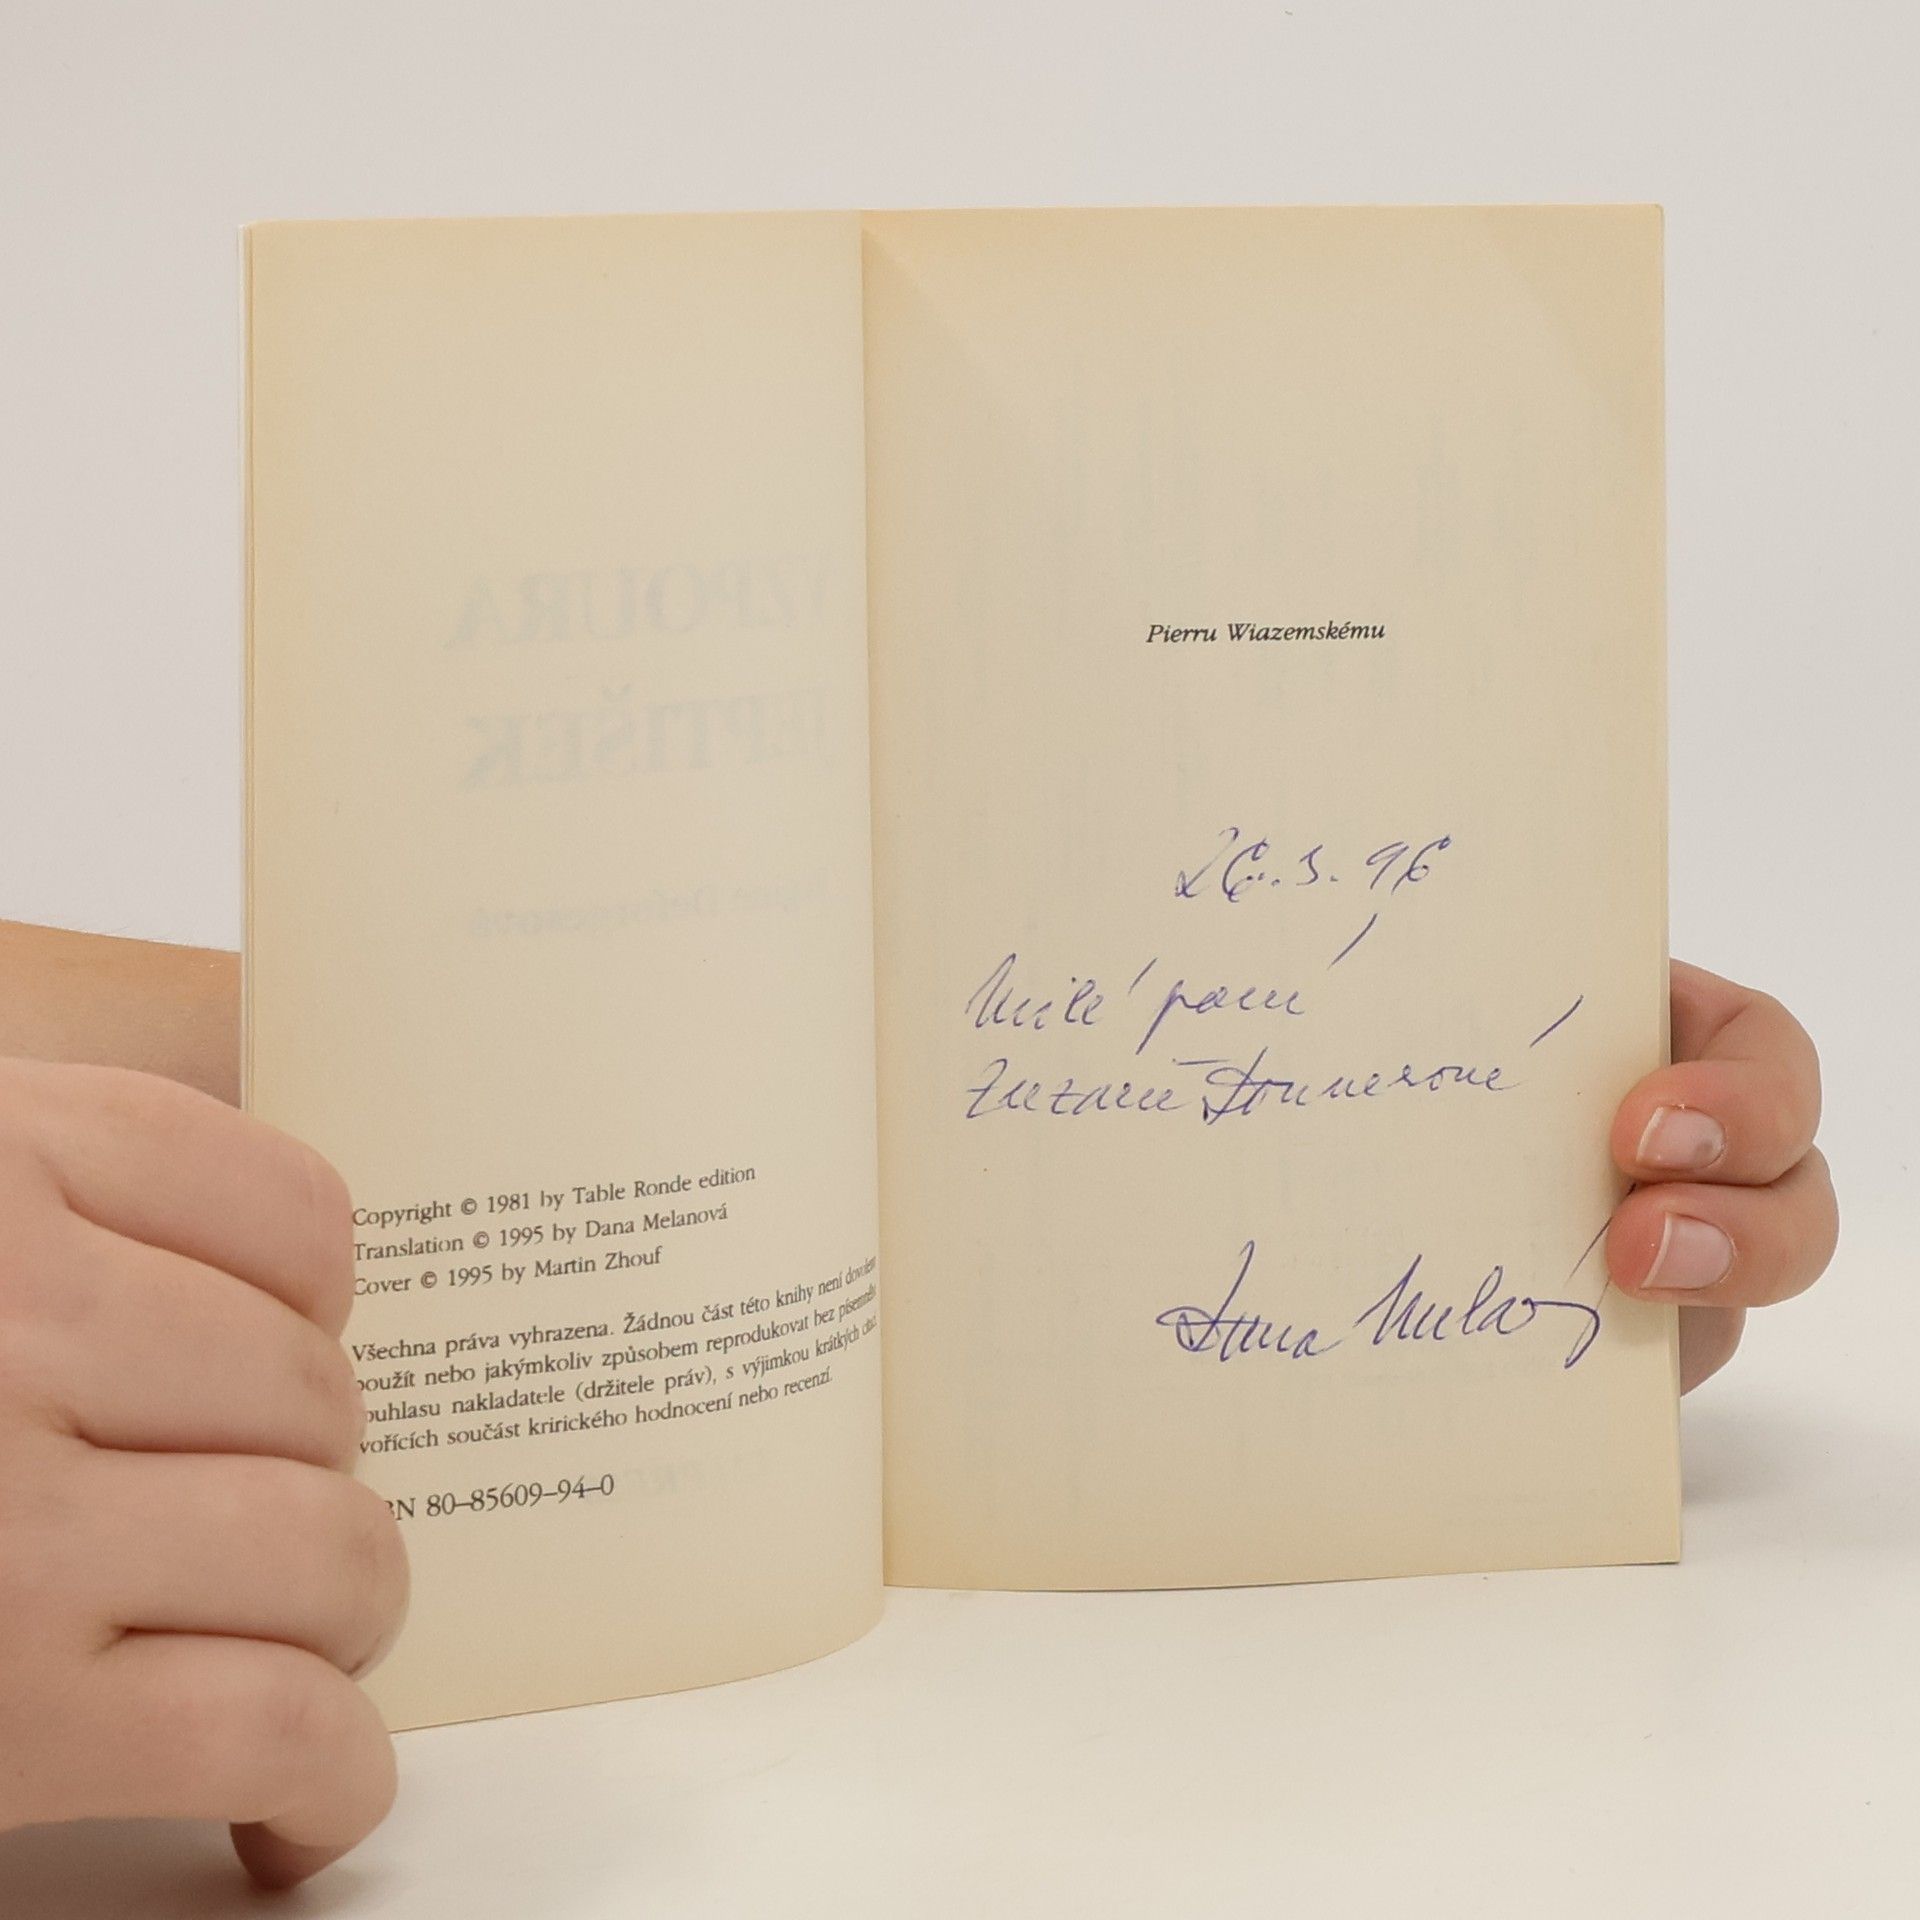 VZPOURA
JEPTIŠEK
Copyright © 1981 by Table Ronde edition
Translation © 1995 by Dana Melanová
Cover © 1995 by Martin Zhouf
Všechna práva vyhrazena. Žádnou část této knihy není dovoleno
použít nebo jakýmkoliv způsobem reprodukovat bez písemného
souhlasu nakladatele (držitele práv), s výjimkou krátkých citací
tvořících součást krirického hodnocení nebo recenzí.
BN 80–85609–94–0
Pierru Wiazemskému
26.3.96
Milé paní
Zuzaně
Dana